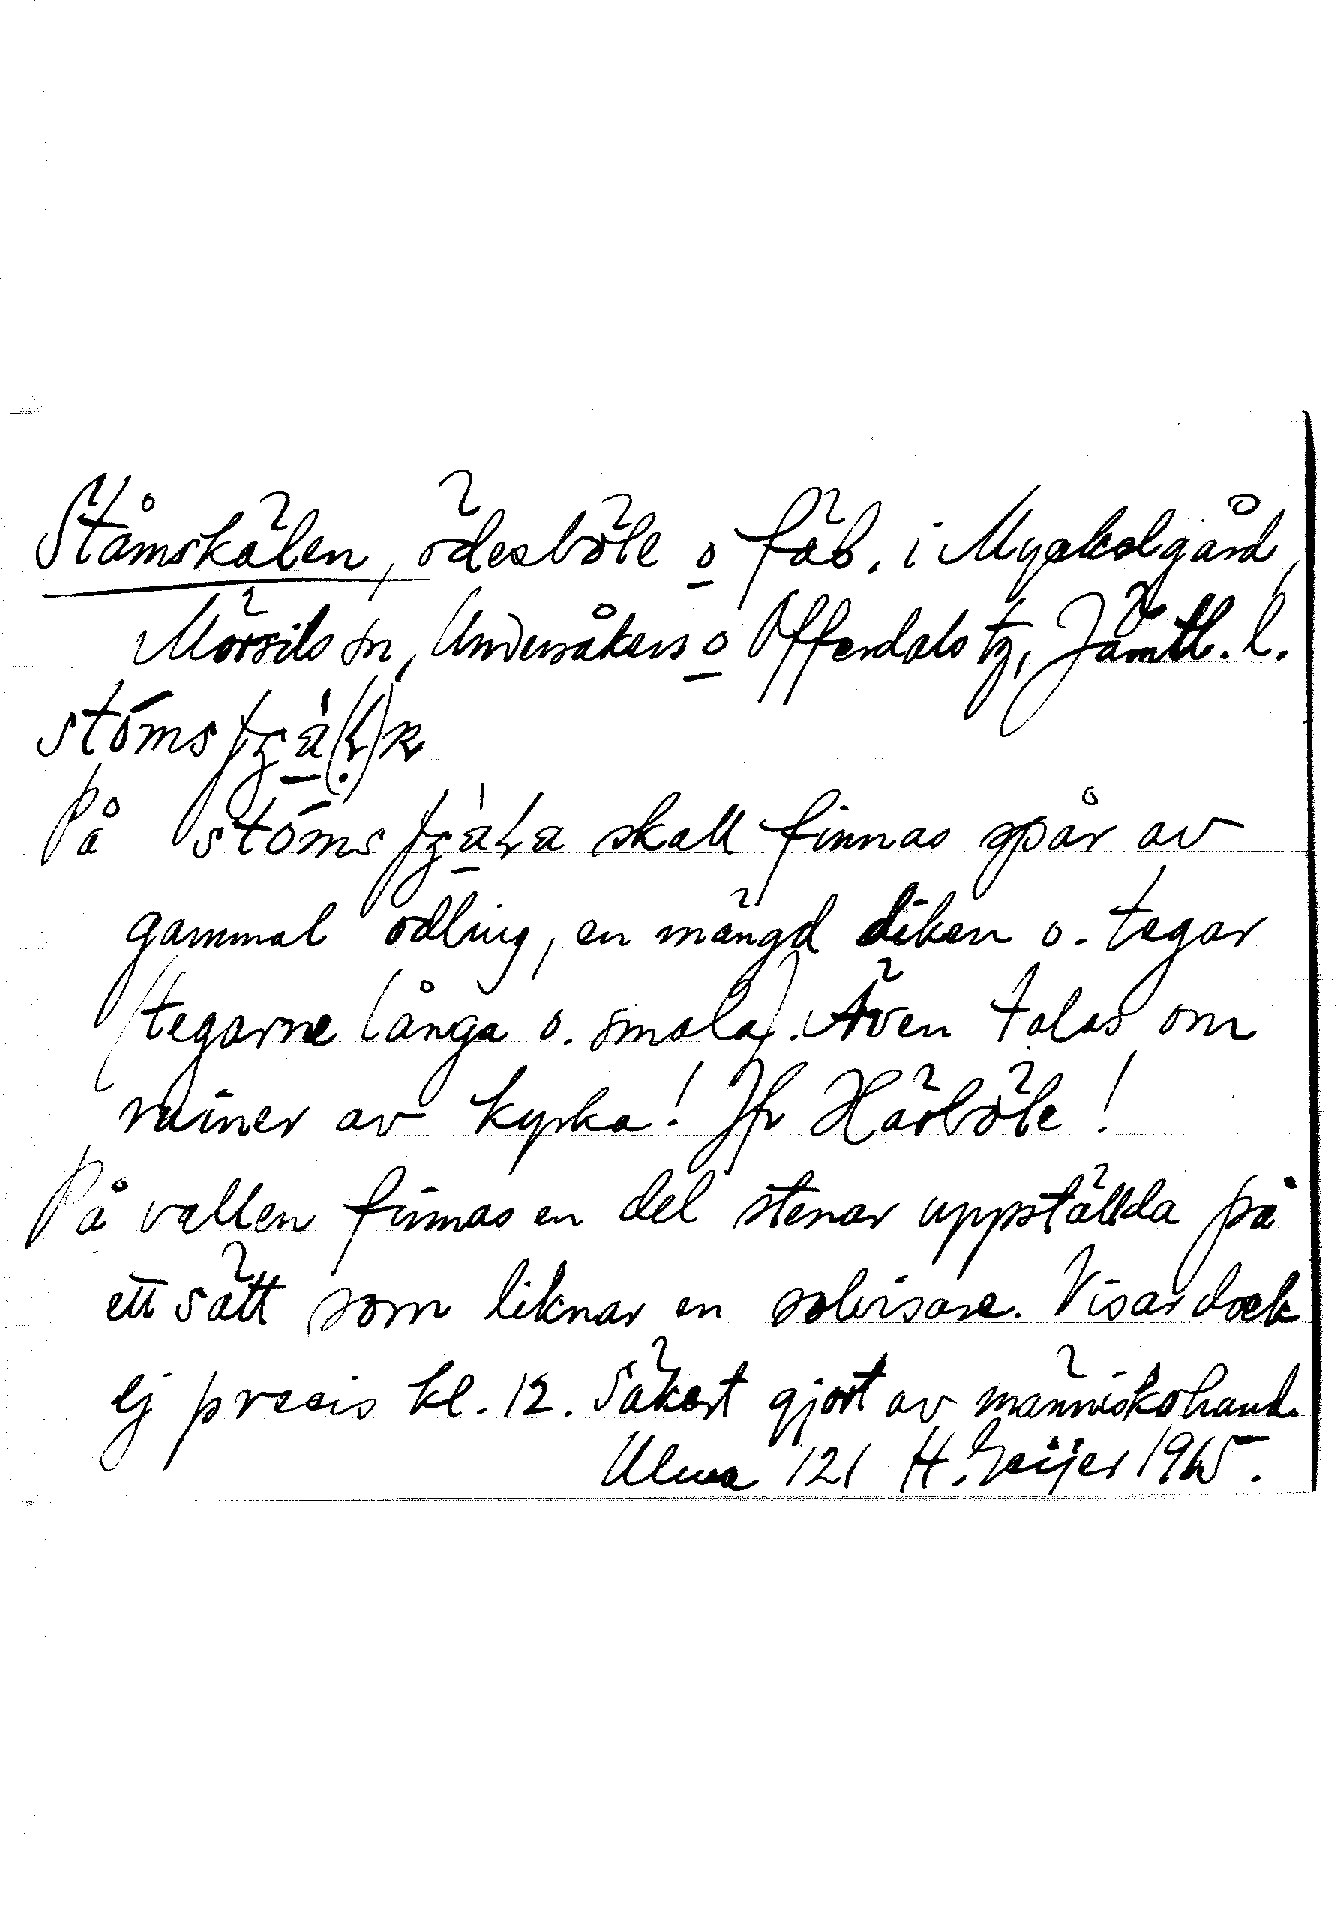 Stamskälen, ödesböle o fäb. i Myckelgård,
Mörsils sn, Undersåkers o Offerdals tg, Jämtl. l.
På skall finnas spår av
gammal odling, en mängd diken o. tegar
(tegarne långa o. smala). Även talas om
ruiner av kyrka! Jfr Härböle!
På vallen finnas en del stenar uppställda på
ett sätt som liknar en solvisare. Visar dock
ej precis kl. 12. Säkert gjort av människohand.
Ulma 121 H. Geijer 1965.